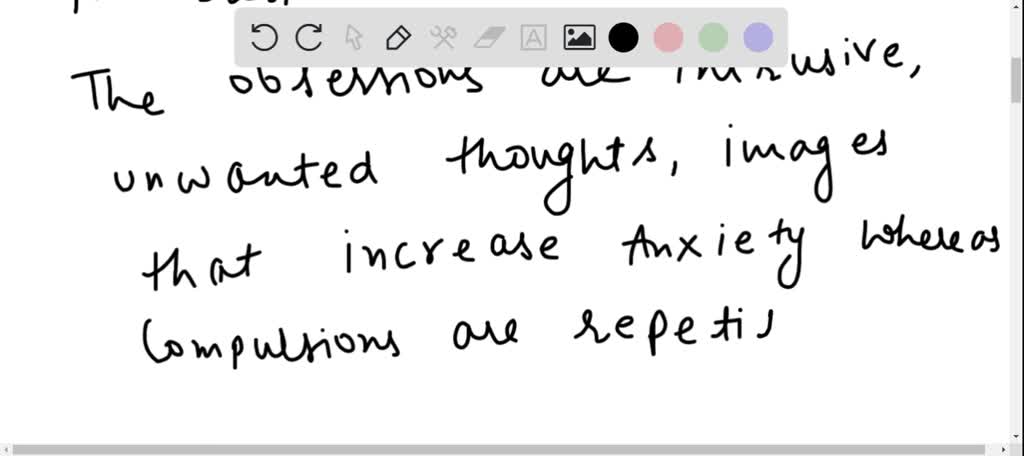 The obsessions are intrusive,
unwanted thoughts, images
that increase Anxiety whereas
Compulsions are repeti